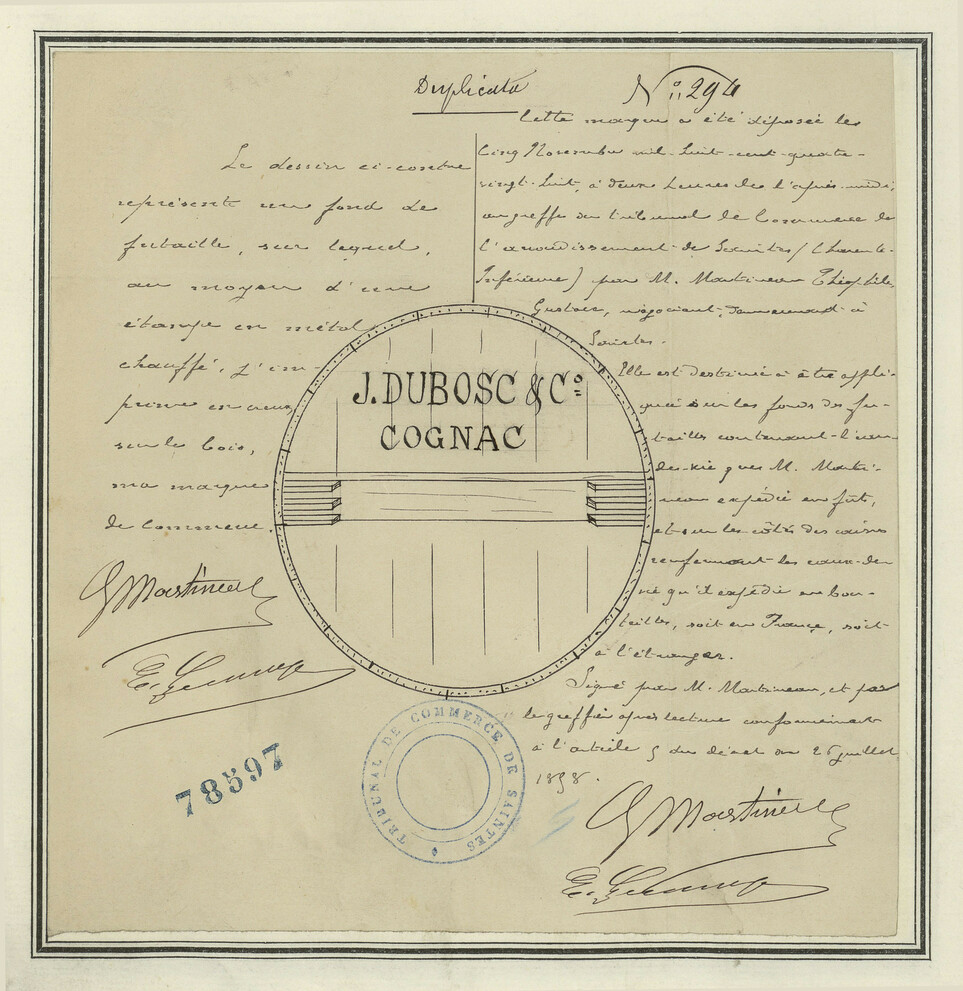 Duplicata
N° 294
Le dessin ci-contre
représente un fond de
futaille, sur lequel,
au moyen d'une
étampe en métal
chauffé, j'im-
prime en creux,
sur le bois,
ma marque
de commerce.
G Martineau
Cette marque a été déposée le
cinq Novembre mil huit-cent-quatre-
vingt-huit, à deux heures de l'après-midi,
au greffe du tribunal de Commerce de
l'arrondissement de Saintes (Charente-
Inférieure) par M. Martineau Théophile
Gustave, négociant, demeurant à
Saintes.
Elle est destinée à être appli-
quée sur les fonds des fu-
tailles contenant l'eau-
de-vie que M. Marti-
neau expédie en fûts,
et sur les côtés des caisses
renfermant les eaux-de-
vie qu'il expédie en bou-
teilles, soit en France, soit
à l'étranger.
Signé par M. Martineau, et par
le greffier après lecture conformément
à l'article 5 du décret du 26 juillet
1858.
G Martineau
J. DUBOSC & C°
COGNAC
TRIBUNAL DE COMMERCE DE SAINTES
78597